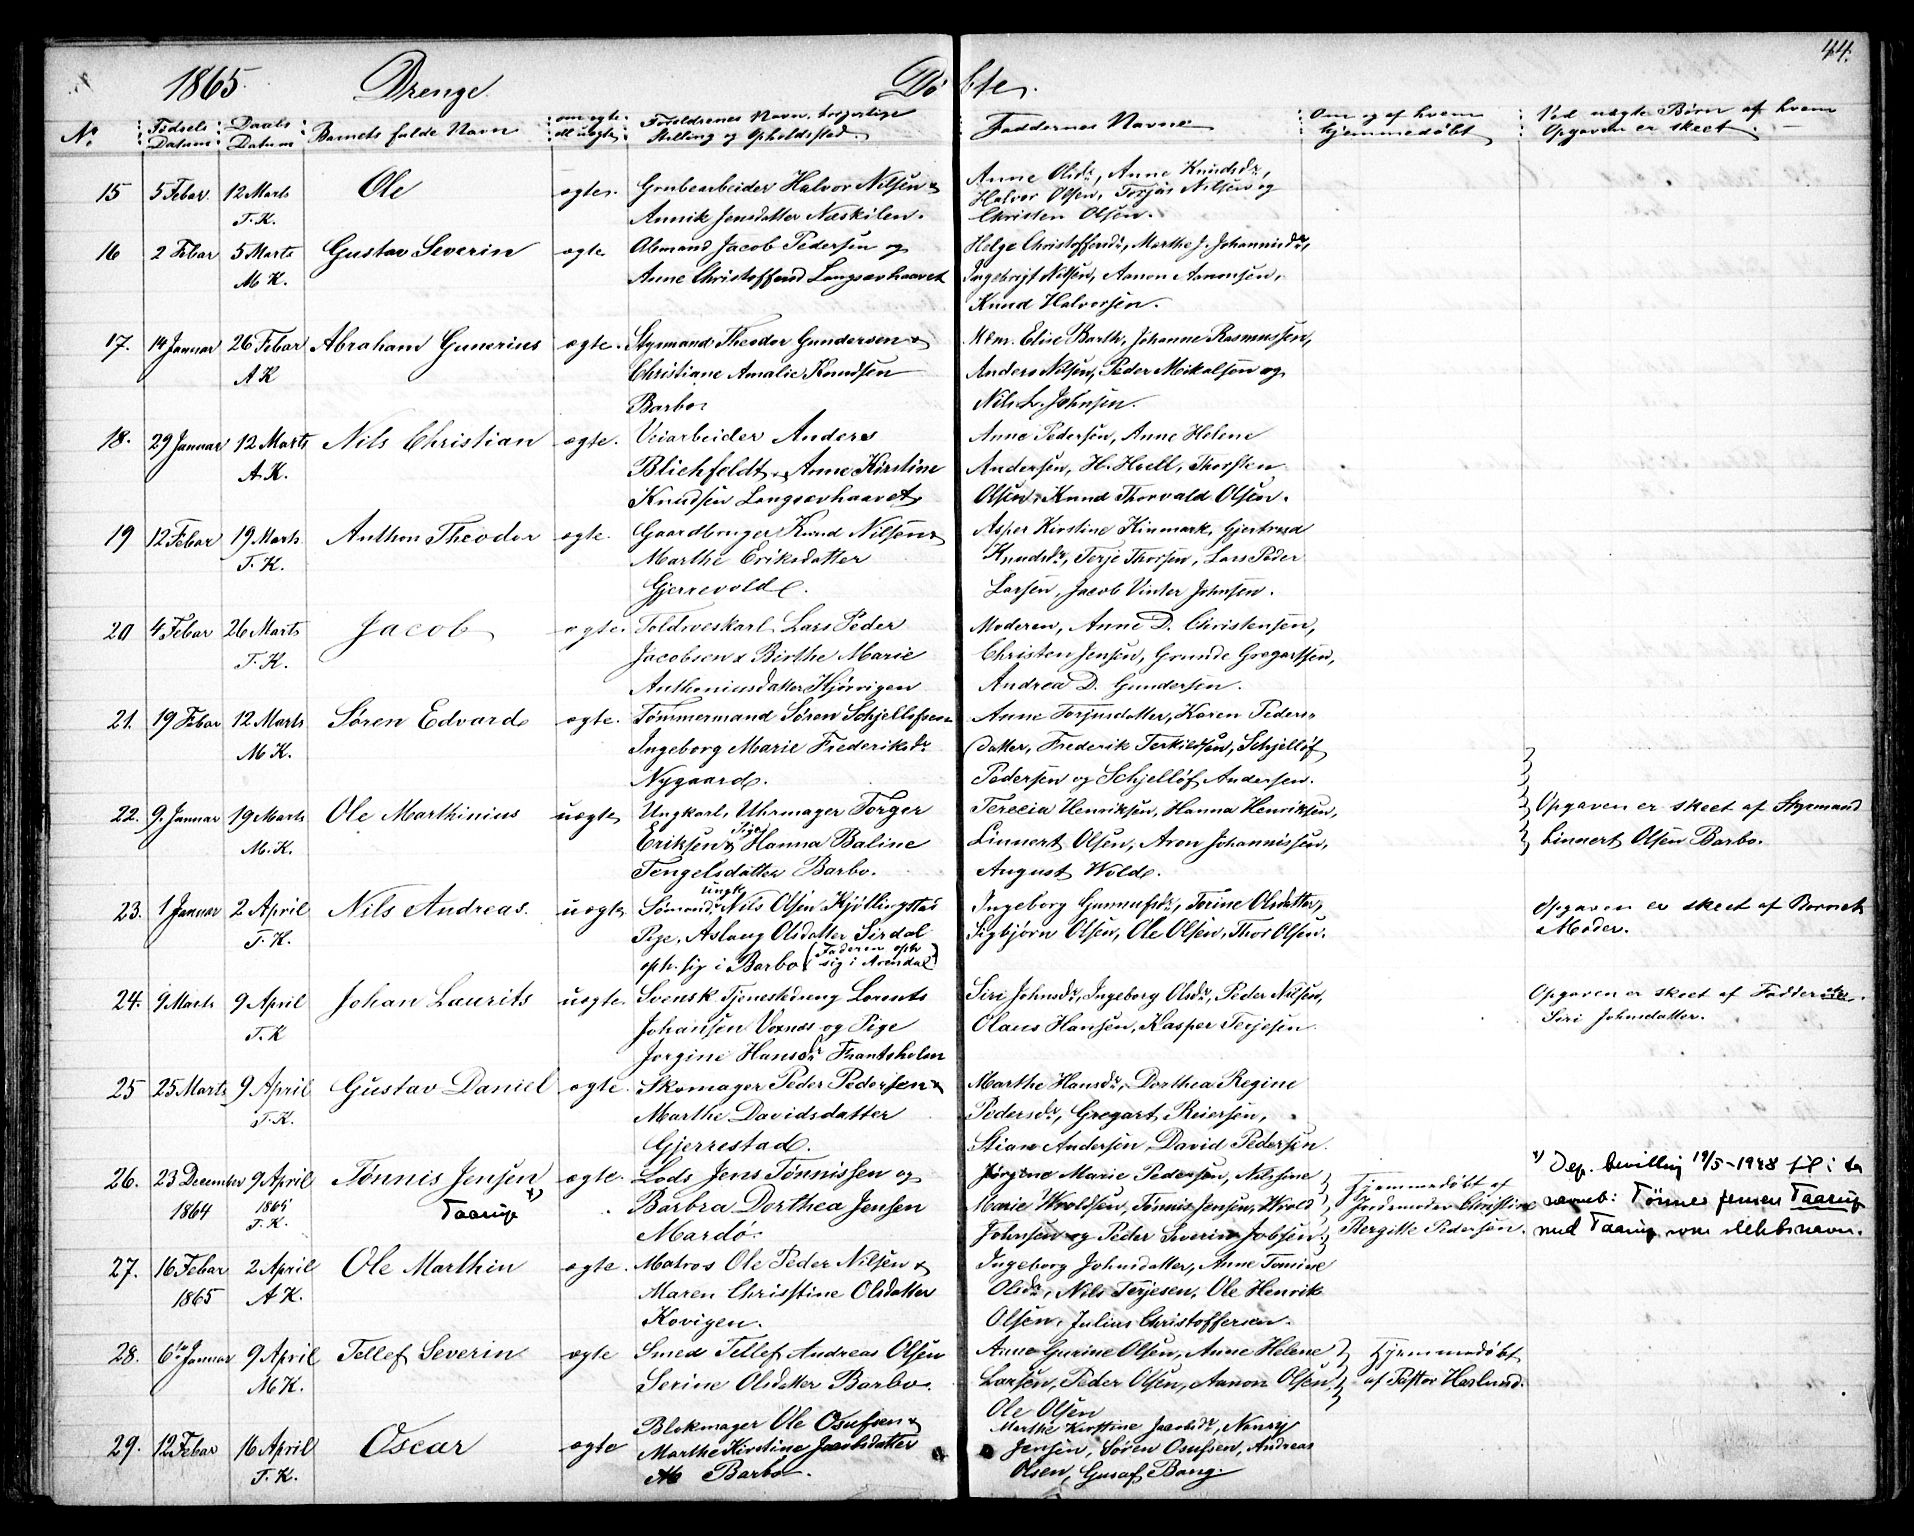 44.
1865. Drenge. Døbte.
No. Fødsels Datum Daabs Datum Barnets fulde Navn om ægte ell. uægte Forældrenes Navn, borgerlige Stilling og Opholdssted. Faddernes Navne Om og af hvem hjemmedøbt Ved uægte Børn af hvem Opgaven er skeet.
15 5 Febar. 12 Marts Ole ægte. Grubearbeider Halvor Nilsen & Anne Olsdr, Anne Knudsdr,
T. K. Annik Jensdatter Næskilen. Halvor Olsen, Terjus Nilsen og
Christen Olsen.
16 2 Febar 5 Marts Gustav Severin ægte Abmand Jacob Pedersen og Helge Christoffersdr, Marthe J. Johannisdr,
M K. Anne Christoffersd Langsævhaavet Ingebrigt Nilsen, Aanon Aanonsen,
Knud Halvorsen.
17. 14 Januar 26 Febar Abraham Gunerius ægte. Styrmand Theodor Gundersen & Mdm. Elise Barth, Johanne Rasmussen,
A K Christiane Amalie Knudsen Anders Nilsen, Peder Meikalsen og
Barbo. Nils L. Johnsen.
18. 29 Januar 12 Marts Nils Christian ægte. Veiarbeider Anders Anne Pedersen, Anne Helene
A. K. Blichfeldt & Anne Kirstine Andersen, H. Hvell, Thorsten
Knudsen Langsævhaavet Olsen, Knud Thorvald Olsen.
19 12 Febar 19 Marts Anthon Theodor ægte. Gaardbruger Knud Nilsen & Asper Kirstine Kinmark, Gjertrud
T. K. Marthe Eriksdatter Knudsdr, Terje Thorsen, Lars Peder
Gjerrevold. Larsen, Jacob Vinter Johnsen.
20 4 Febar 26 Marts Jacob ægte. Toldveskarl Lars Peder Moderen, Anne D. Christensen,
T. K. Jacobsen & Birthe Marie Christen Jensen, Grunde Gregersen,
Anthoniusdatter Kjørvigen Andrea D. Gundersen.
21. 19 Febar 12 Marts Søren Edvard ægte. Tømmermand Søren Schjelløfsen Anne Terjusdatter, Karen Peders-
M K. Ingeborg Marie Frederiksdr datter, Frederik Terkildsen, Schjelløf
Nygaard. Pedersen og Schjelløf Andersen.
22. 9. Januar 19 Marts Ole Marthinius uægte Ungkarl, Uhrmager Torger Terecia Henriksen, Hanna Henriksen, Opgaven er skeet af Styrmand
M. K. Eriksen & Pige Hanna Baline Linnert Olsen, Aron Johannissen, Linnert Olsen Barbo.
Tengelsdatter Barbo. August Wold.
23. 1 Januar 2 April Nils Andreas. uægte Ungk. Sømand Nils Olsen Kjøllingstad Ingeborg Gunnufsdr, Torine Olsdatter, Opgaven er skeet af Barnets
T. K. Pige, Aslaug Olsdatter Sirdal Sigbjørn Olsen, Ole Olsen, Thor Olsen. Moder.
oph. sig i Barbo (Faderen oph sig i Arendal)
24. 9 Marts 9 April Johan Laurits uægte. Svensk Tjenestedreng Lorents Siri Johnsdr, Ingeborg Olsdr, Peder Nilsen, Opgaven er skeet af Fadder
T. K Johansen Voxnæs og Pige Olaus Hansen, Kasper Terjesen Siri Johnsdatter.
Jorgine Hansdr Frantsholm
25 25 Marts 9 April Gustav Daniel ægte. Skomager Peder Pedersen & Marthe Hansdr, Dorthea Regine
T. K. Marthe Davidsdatter Pedersdr, Gregart Reiersen,
Gjerrestad. Stian Andersen, David Pedersen.
26. 23 December 9 April Tønnis Jensen ægte. Lods Jens Tønnissen og Jørgine Marie Pedersen, Nilsine Hjemmedøbt af x) Dep. bevilling 19/5-1928 til å ta
1864 1865 x) Taarup Barbra Dorthea Jensen Marie Wroldsen, Tønnis Jensen, Wrold Jordemoder Christine navnet: Tønnes Jensen Taarup
T. K. Mardø. Johnsen og Peder Severin Jobsen. Bergitte Pedersen. med Taarup som slektsnavn.
27. 16 Febar 2 April Ole Marthin ægte. Matros Ole Peder Nilsen & Ingeborg Johnsdatter, Anne Tomine
1865 A K. Maren Christine Olsdatter Olsdr, Nils Terjesen, Ole Henrik
Kovigen. Olsen, Julius Christoffersen.
28. 6te Januar 9 April Tellef Severin ægte Smed Tellef Andreas Olsen Anne Gurine Olsen, Anne Helene Hjemmedøbt
M K. Serine Olsdatter Barbo. Larsen, Peder Olsen, Aanon Olsen, af Pastor Haslund.
Ole Olsen
29. 12 Febar 16 April Oscar ægte Blokmager Ole Osufsen & Marthe Kirstine Jacobsdr, Nancy
T. K. Marthe Kirstine Jacobsdatter Jensen, Søren Osufsen, Andreas
Barbo. Olsen, Gustaf Bang.